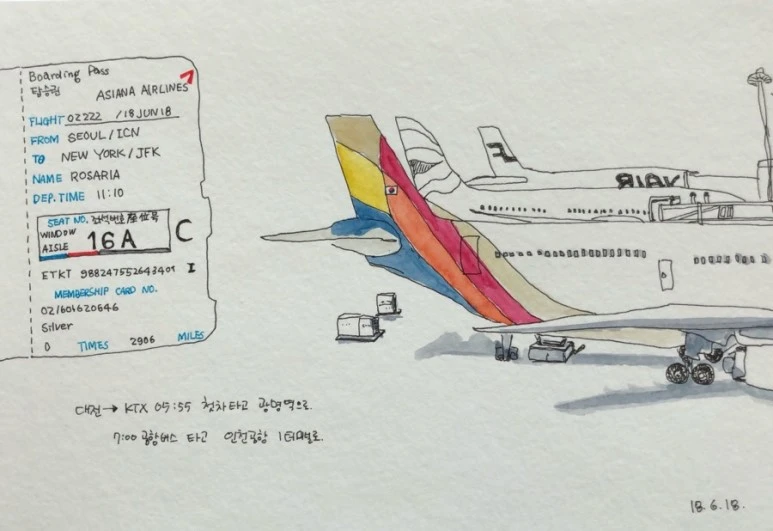 Boarding Pass
탑승권
ASIANA AIRLINES
FLIGHT OZ222 /18JUN18
FROM SEOUL/ICN
TO NEW YORK/JFK
NAME ROSARIA
DEP.TIME 11:10
SEAT NO. 좌석번호 座位号
WINDOW
AISLE
16A
C
ETKT 988247552643401 I
MEMBERSHIP CARD NO.
02/601620646
Silver
0 TIMES 2906 MILES
대전→ KTX 05:55 첫차타고 광명역으로.
7:00 공항버스 타고 인천공항 1터미널로.
18.6.18.